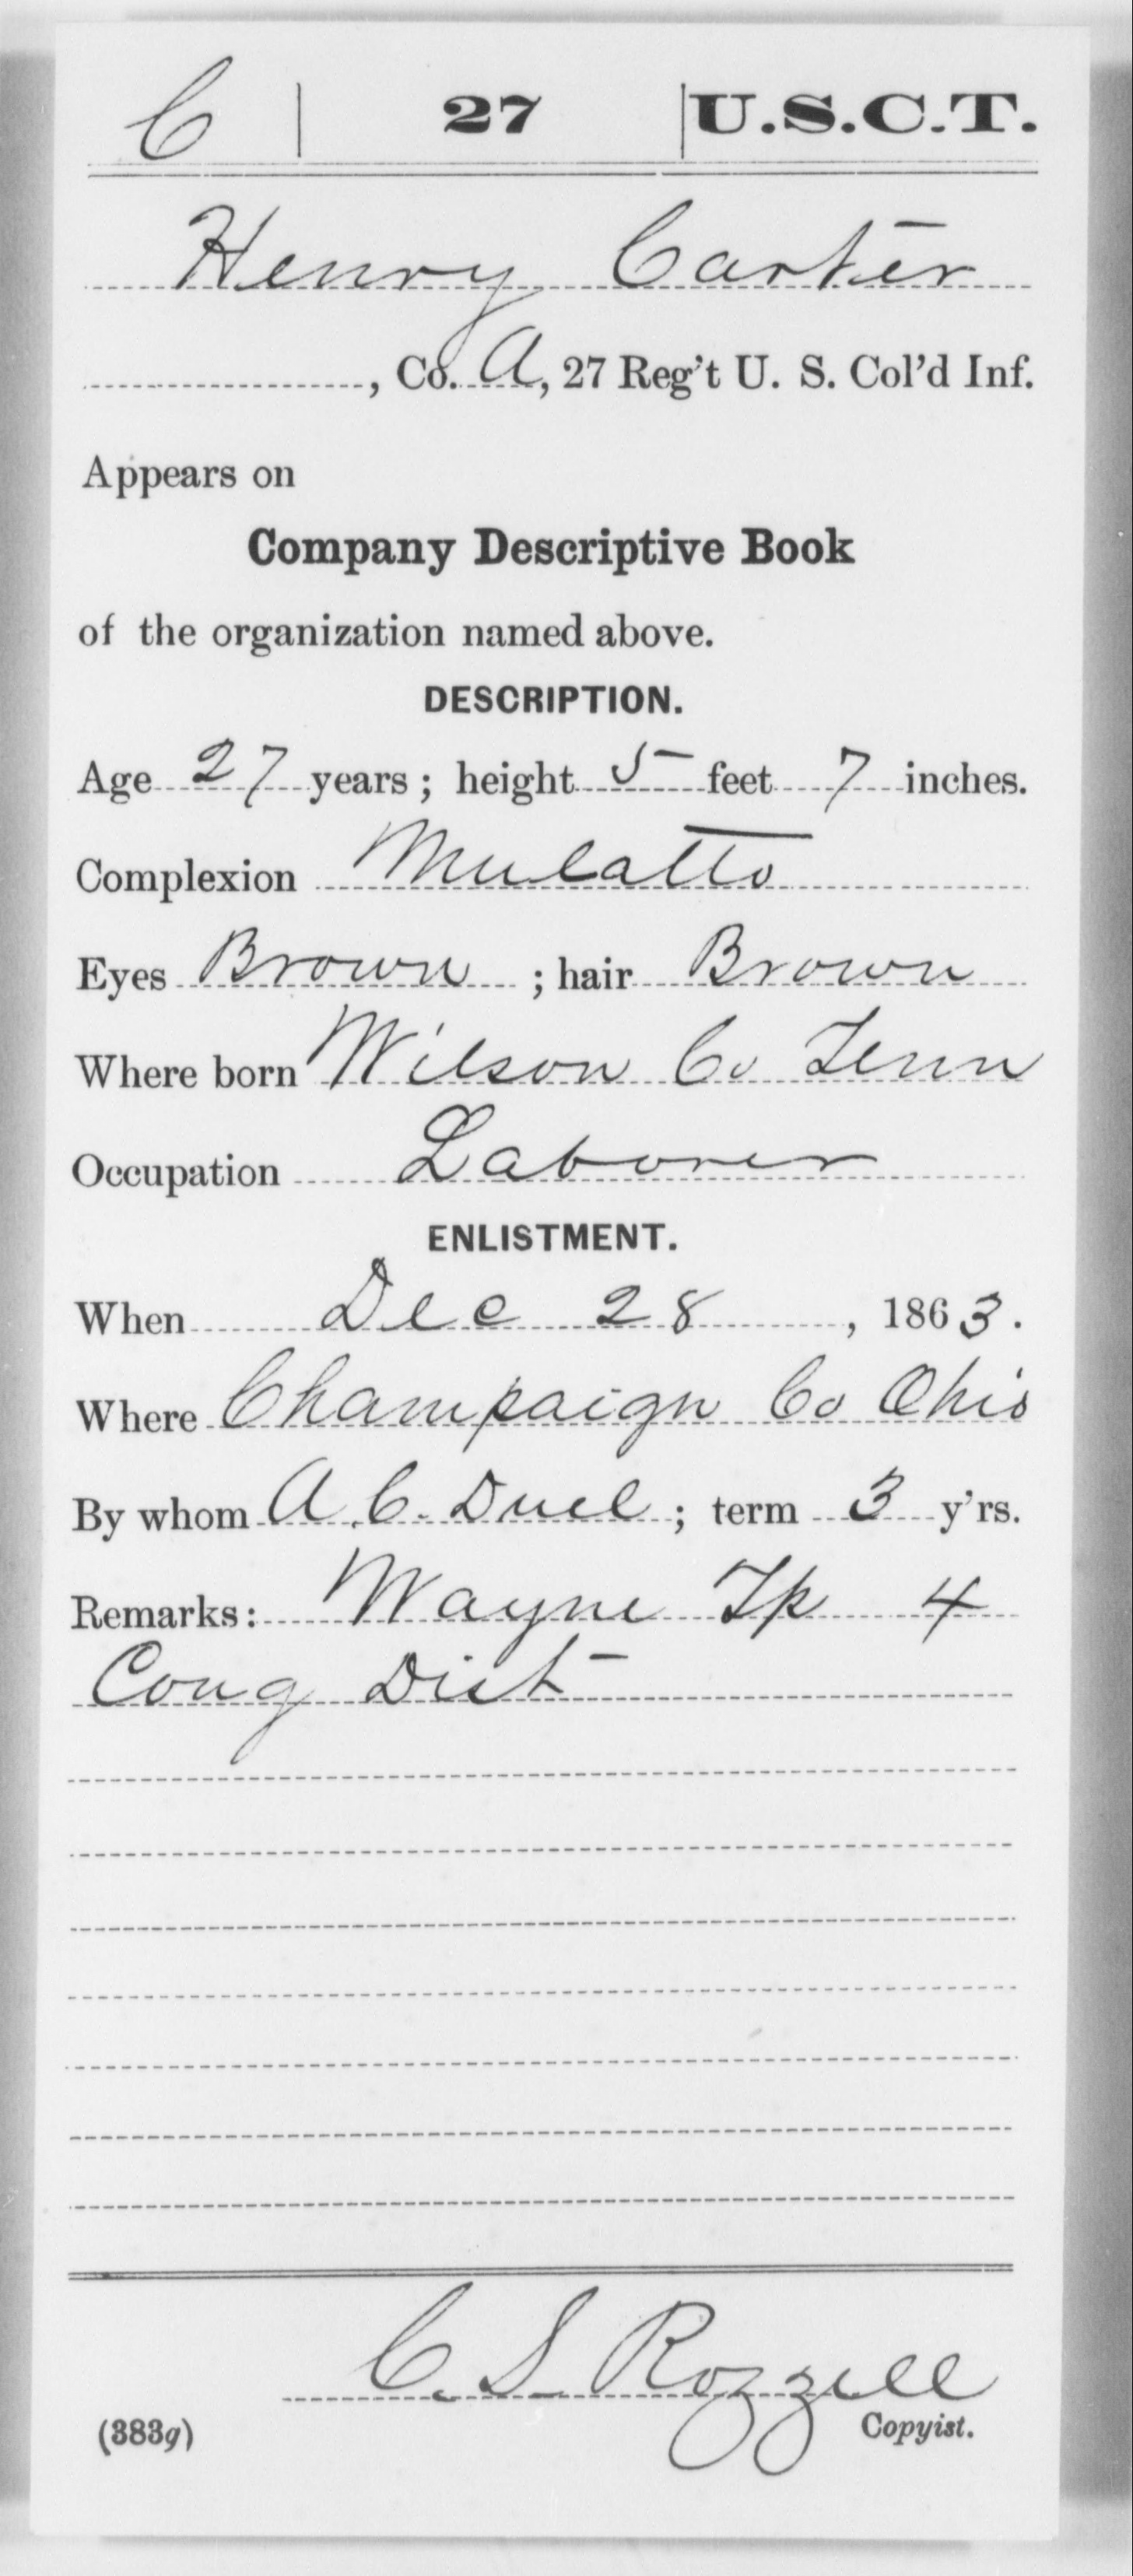 C | 27 | U.S.C.T.
Henry Carter
, Co. A, 27 Reg't U. S. Col'd Inf.
Appears on
Company Descriptive Book
of the organization named above.
DESCRIPTION.
Age 27 years; height 5 feet 7 inches.
Complexion Mulatto
Eyes Brown; hair Brown
Where born Wilson Co Tenn
Occupation Laborer
ENLISTMENT.
When Dec 28, 1863.
Where Champaign Co Ohio
By whom A. C. Duel; term 3 y'rs.
Remarks: Wayne Tp 4
Cong Dist
C. S. Rozzell
(383g) Copyist.